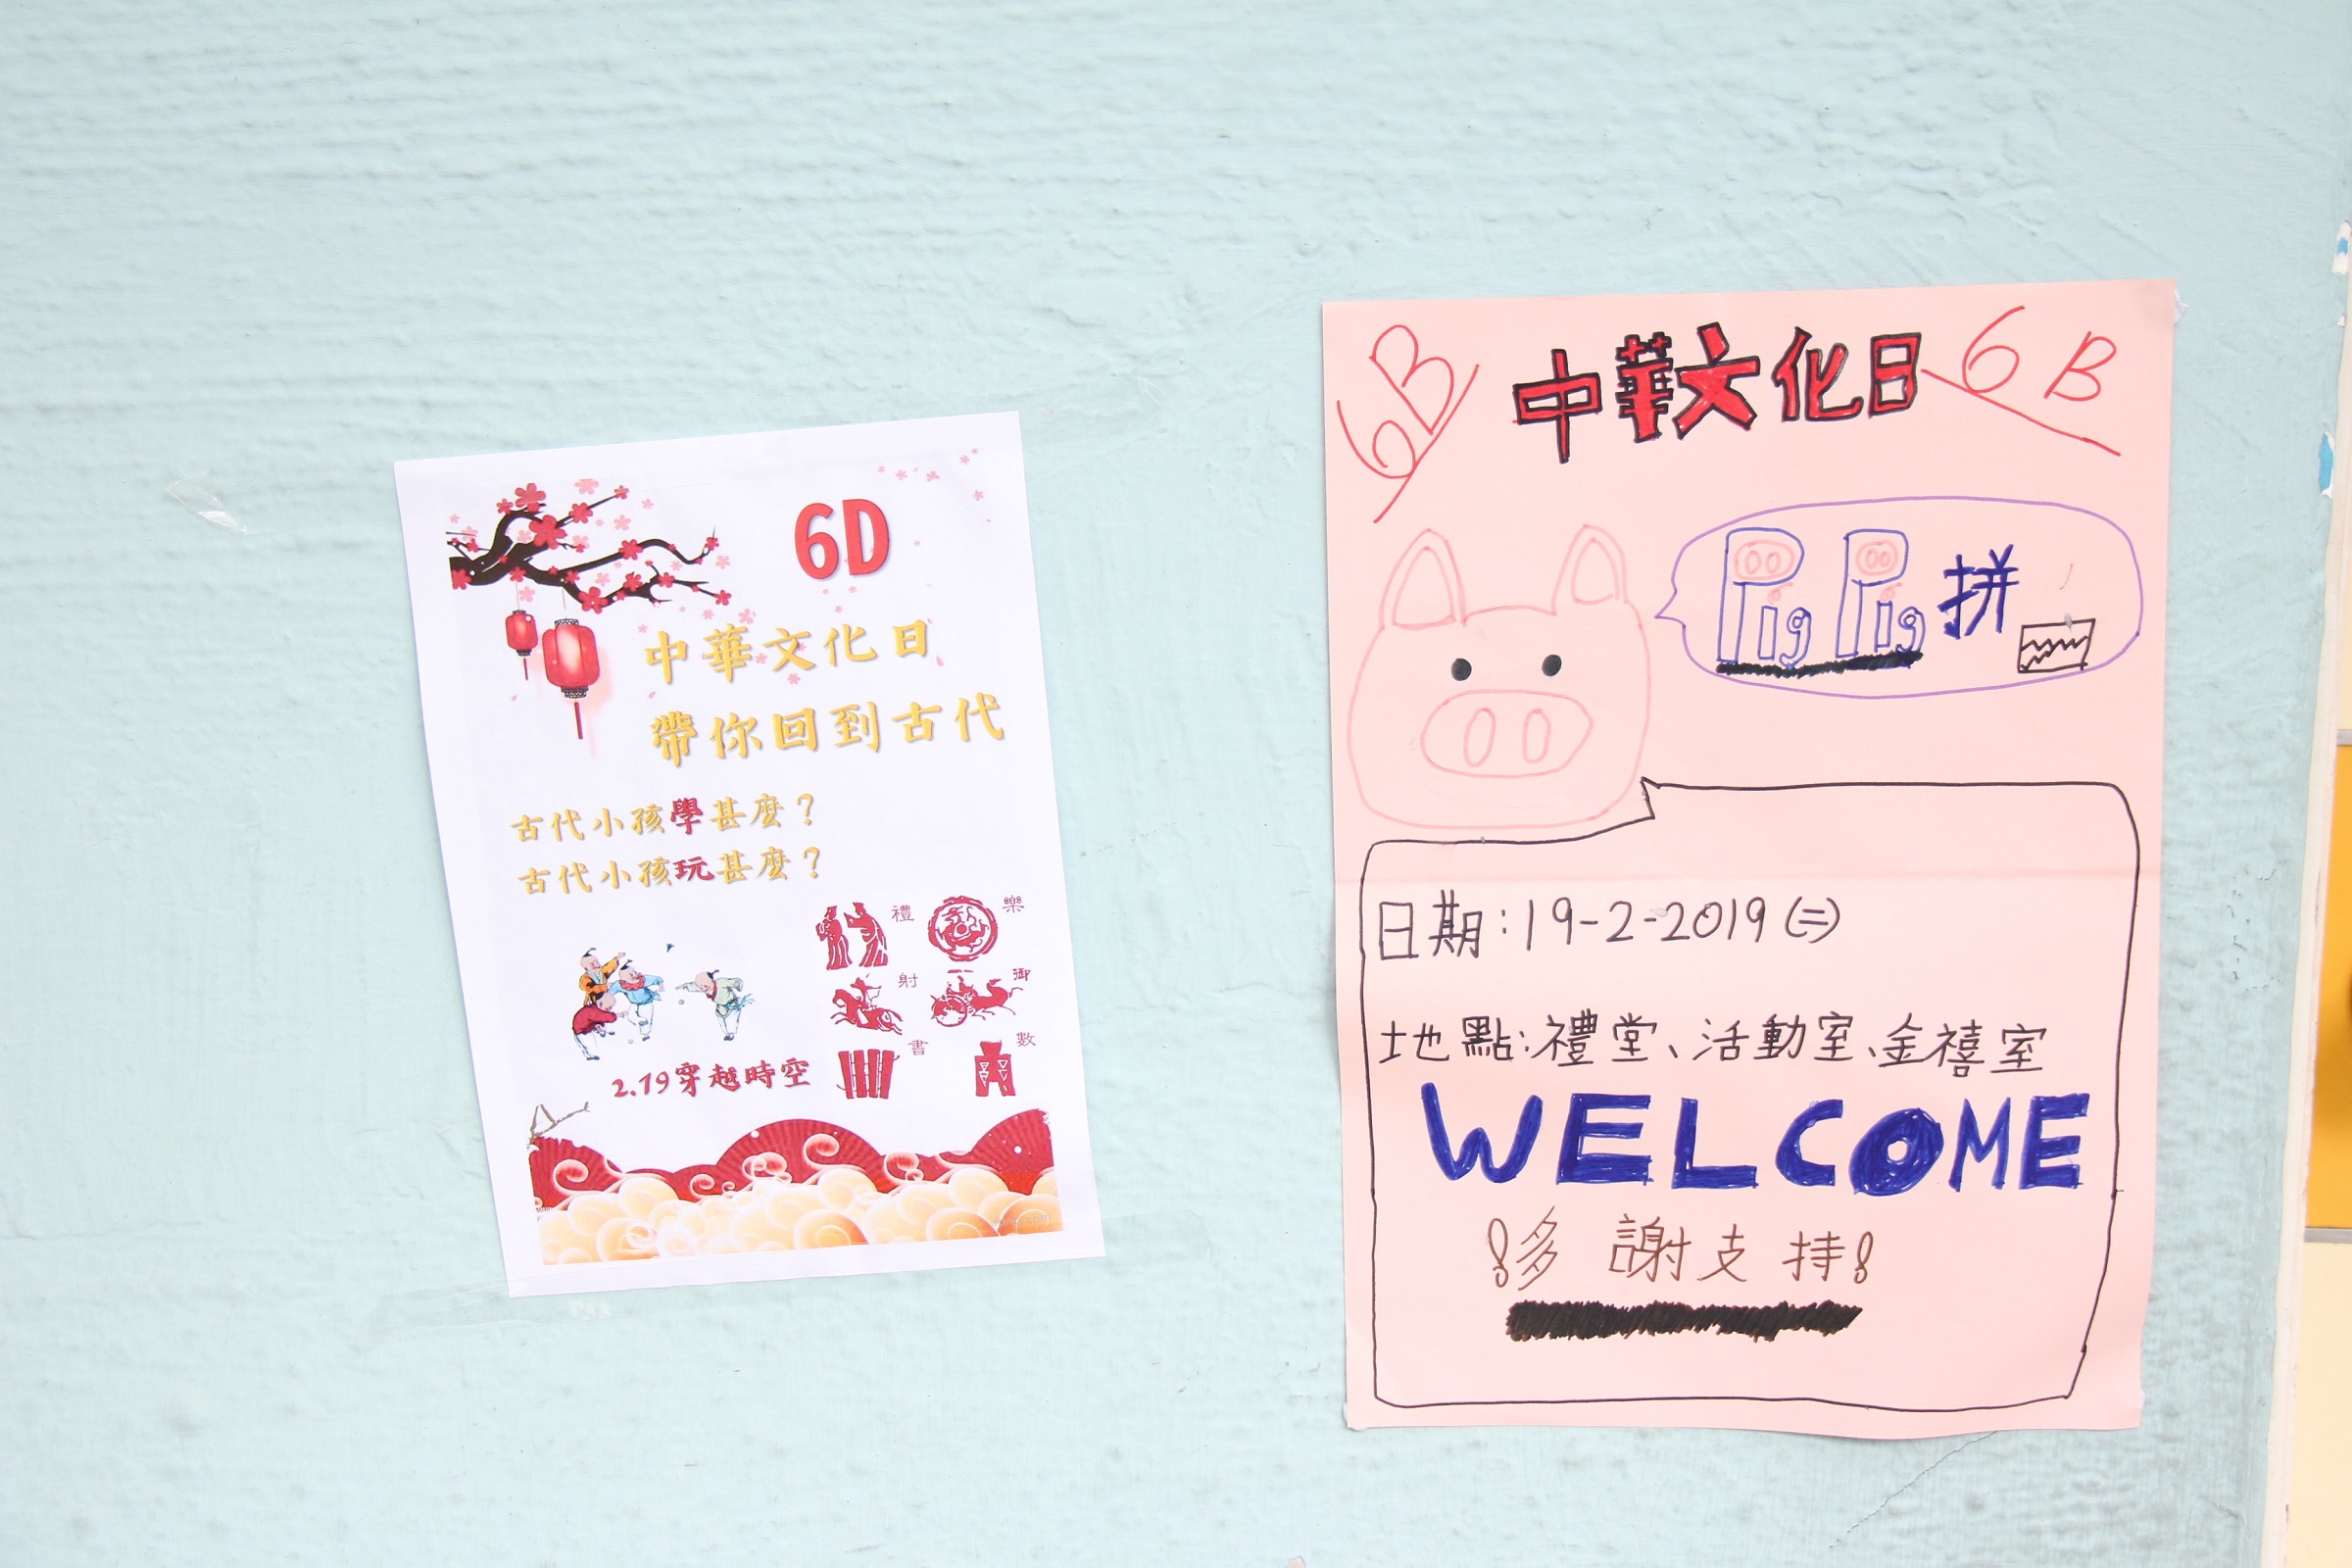 6D
中華文化日
帶你回到古代
古代小孩學甚麼？
古代小孩玩甚麼？
禮 樂
射 御
書 數
2.19穿越時空
6B 中華文化日 6B
Pig Pig 拼
日期:19-2-2019(二)
地點:禮堂、活動室、金禧室
WELCOME
!多謝支持!